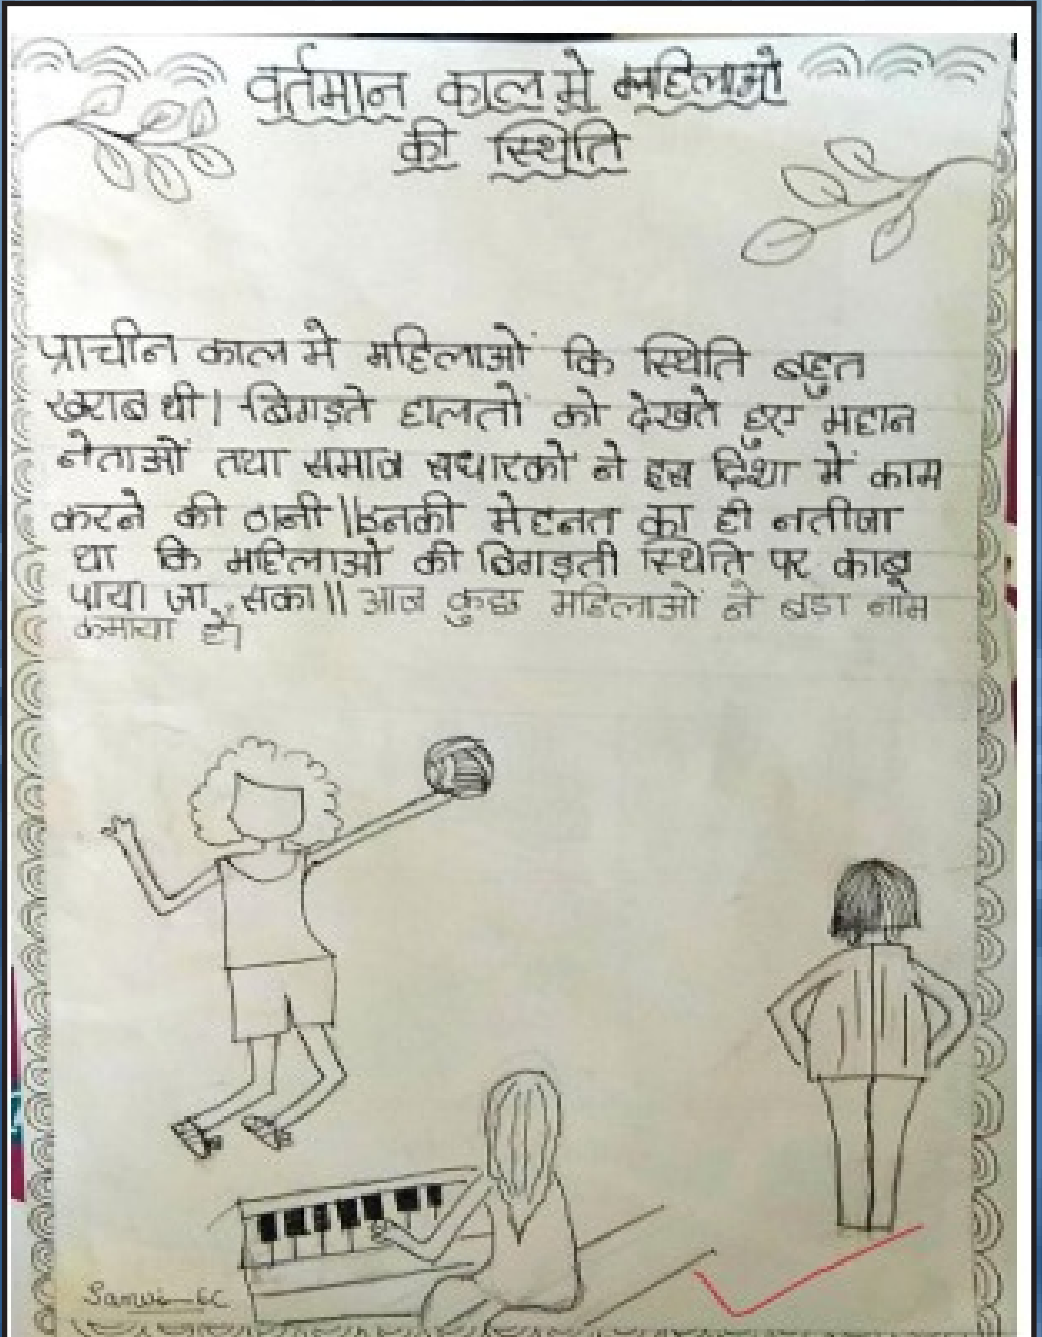 वर्तमान काल मे महिलाओ
की स्थिति
प्राचीन काल मे महिलाओं कि स्थिति बहुत
खराब थी। बिगड़ते हालतों को देखते हुए महान
नेताओं तथा समाज सुधारकों ने इस दिशा में काम
करने की ठानी॥इनकी मेहनत का ही नतीजा
था कि महिलाओं की बिगड़ती स्थिति पर काबू
पाया जा सका॥ आज कुछ महिलाओं ने बड़ा नाम
कमाया है।
Sanvi-6C